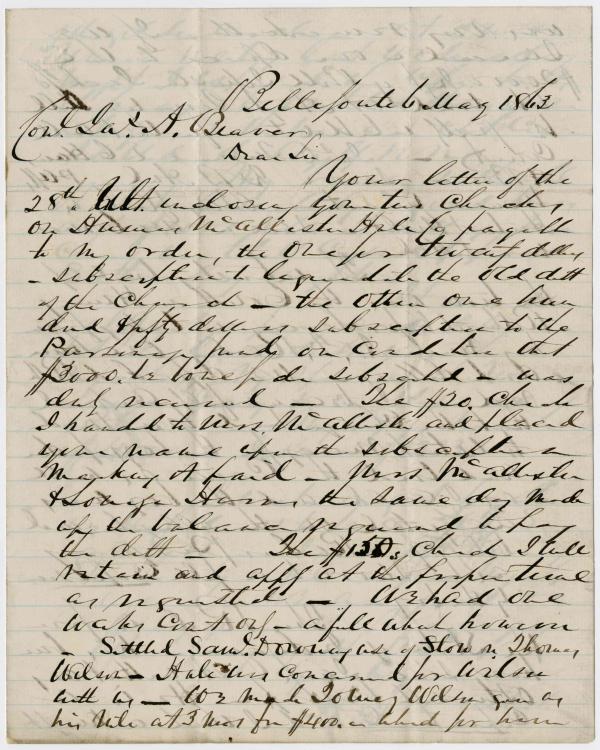 Bellefonte 6 May 1863
Col. Jas. A. Beaver
Dear Sir
Your letter of the
28th Ult. inclosing your two Checks,
on Humes McAllister Hale & Co payable
to my order, the One for twenty dollars
- subscription to liquidate the old debt
of the Church - the other One hun
dred & fifty dollars subscription to the
Parsonage fund, on Condition that
$3000. be bona fide subscribed - was
duly received - The $20. Check
I handed to Mrs. McAllister and placed
your name upon the subscription
Marking it paid - Mrs McAllister
& Harris, the same day made
up the balance required to pay
the debt - The $150s Check I will
retain and apply at the proper time
as requested - We had one
weeks Court only - a full week however
- Settled Saml. Downing use of Stow vs Thomas
Wilson - Hale was Concerned for Wilson
with us - We made Wilson give us
his Note at 3 Mos for $400. in Bank for him